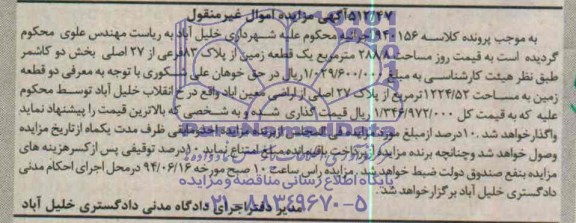 ۵۱۲/۴۷ آگهی مزایده اموال غیرمنقول
به موجب پرونده کلاسه ۹۴۰۱۵۶ اجرائیه محکوم علیه شهرداری خلیل آباد به ریاست مهندس علوی محکوم
گردیده است به قیمت روز مساحت ۲۸۸/۸ مترمربع یک قطعه زمین از پلاک ۸۳ فرعی از ۲۷ اصلی بخش دو کاشمر
طبق نظر هیئت کارشناسی به مبلغ ۱/۰۲۹/۶۰۰/۰۰۰ ریال در حق خوهان علی شکوری با توجه به معرفی دو قطعه
زمین به مساحت ۱۲۲۴/۵۲ مترمربع از پلاک ۲۷ اصلی از اراضی معین آباد واقع در خ انقلاب خلیل آباد توسط محکوم
علیه که به قیمت کل ۱/۳۴۶/۹۷۲/۰۰۰ ریال قیمت گذاری شده و به شخصی که بالاترین قیمت را پیشنهاد نماید
واگذار خواهد شد. ۱۰ درصد از مبلغ مورد مزایده فی المجلس از برنده مزایده اخذ مابقی ظرف مدت یکماه از تاریخ مزایده
وصول خواهد شد و چنانچه برنده مزایده از پرداخت باقیمانده مبلغ امتناع نماید ۱۰ درصد توقیفی پس از کسر هزینه های
مزایده بنفع صندوق دولت ضبط خواهد شد. مزایده راس ساعت ۱۰ صبح مورخه ۹۴/۰۶/۱۶ در محل اجرای احکام مدنی
دادگستری خلیل آباد برگزار خواهد شد.
مدیر دفتر اجرای دادگاه مدنی دادگستری خلیل آباد
پایگاه اطلاع رسانی مناقصه و مزایده
۰۲۱-۸۸۳۴۹۶۷۰-۵